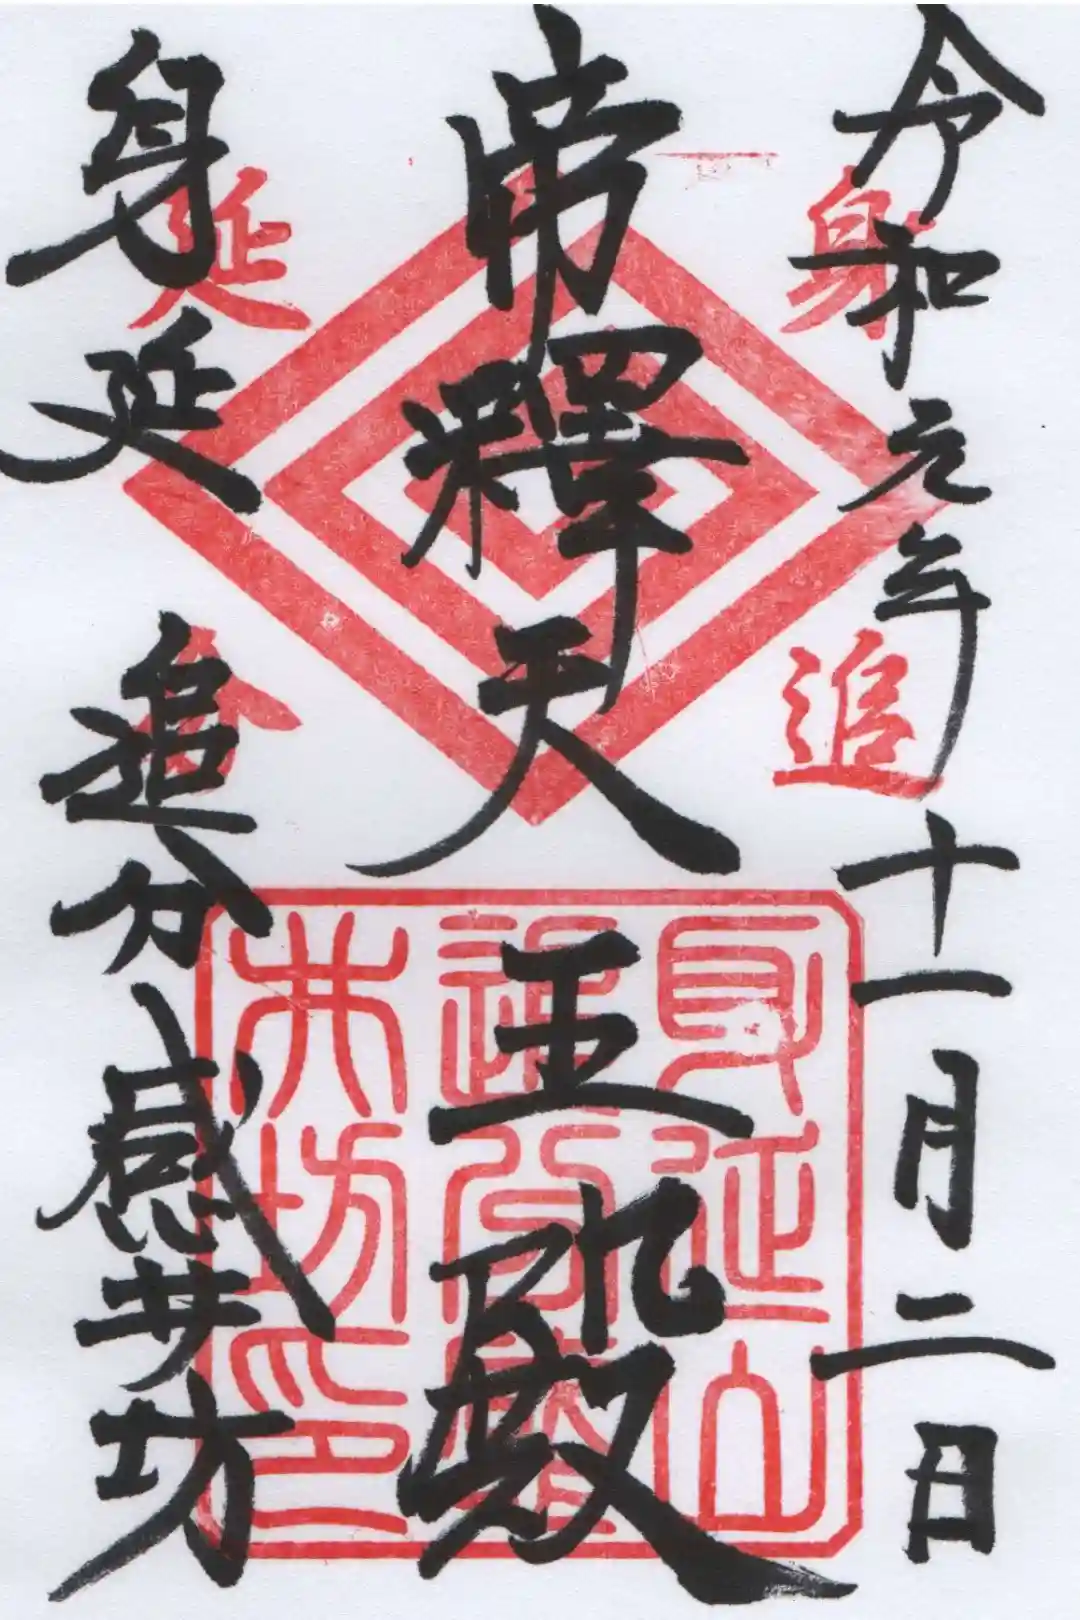 令和元年十一月二日
帝釋天王殿
身延 追分感井坊
身延
追分
身延山
追分感
井坊印